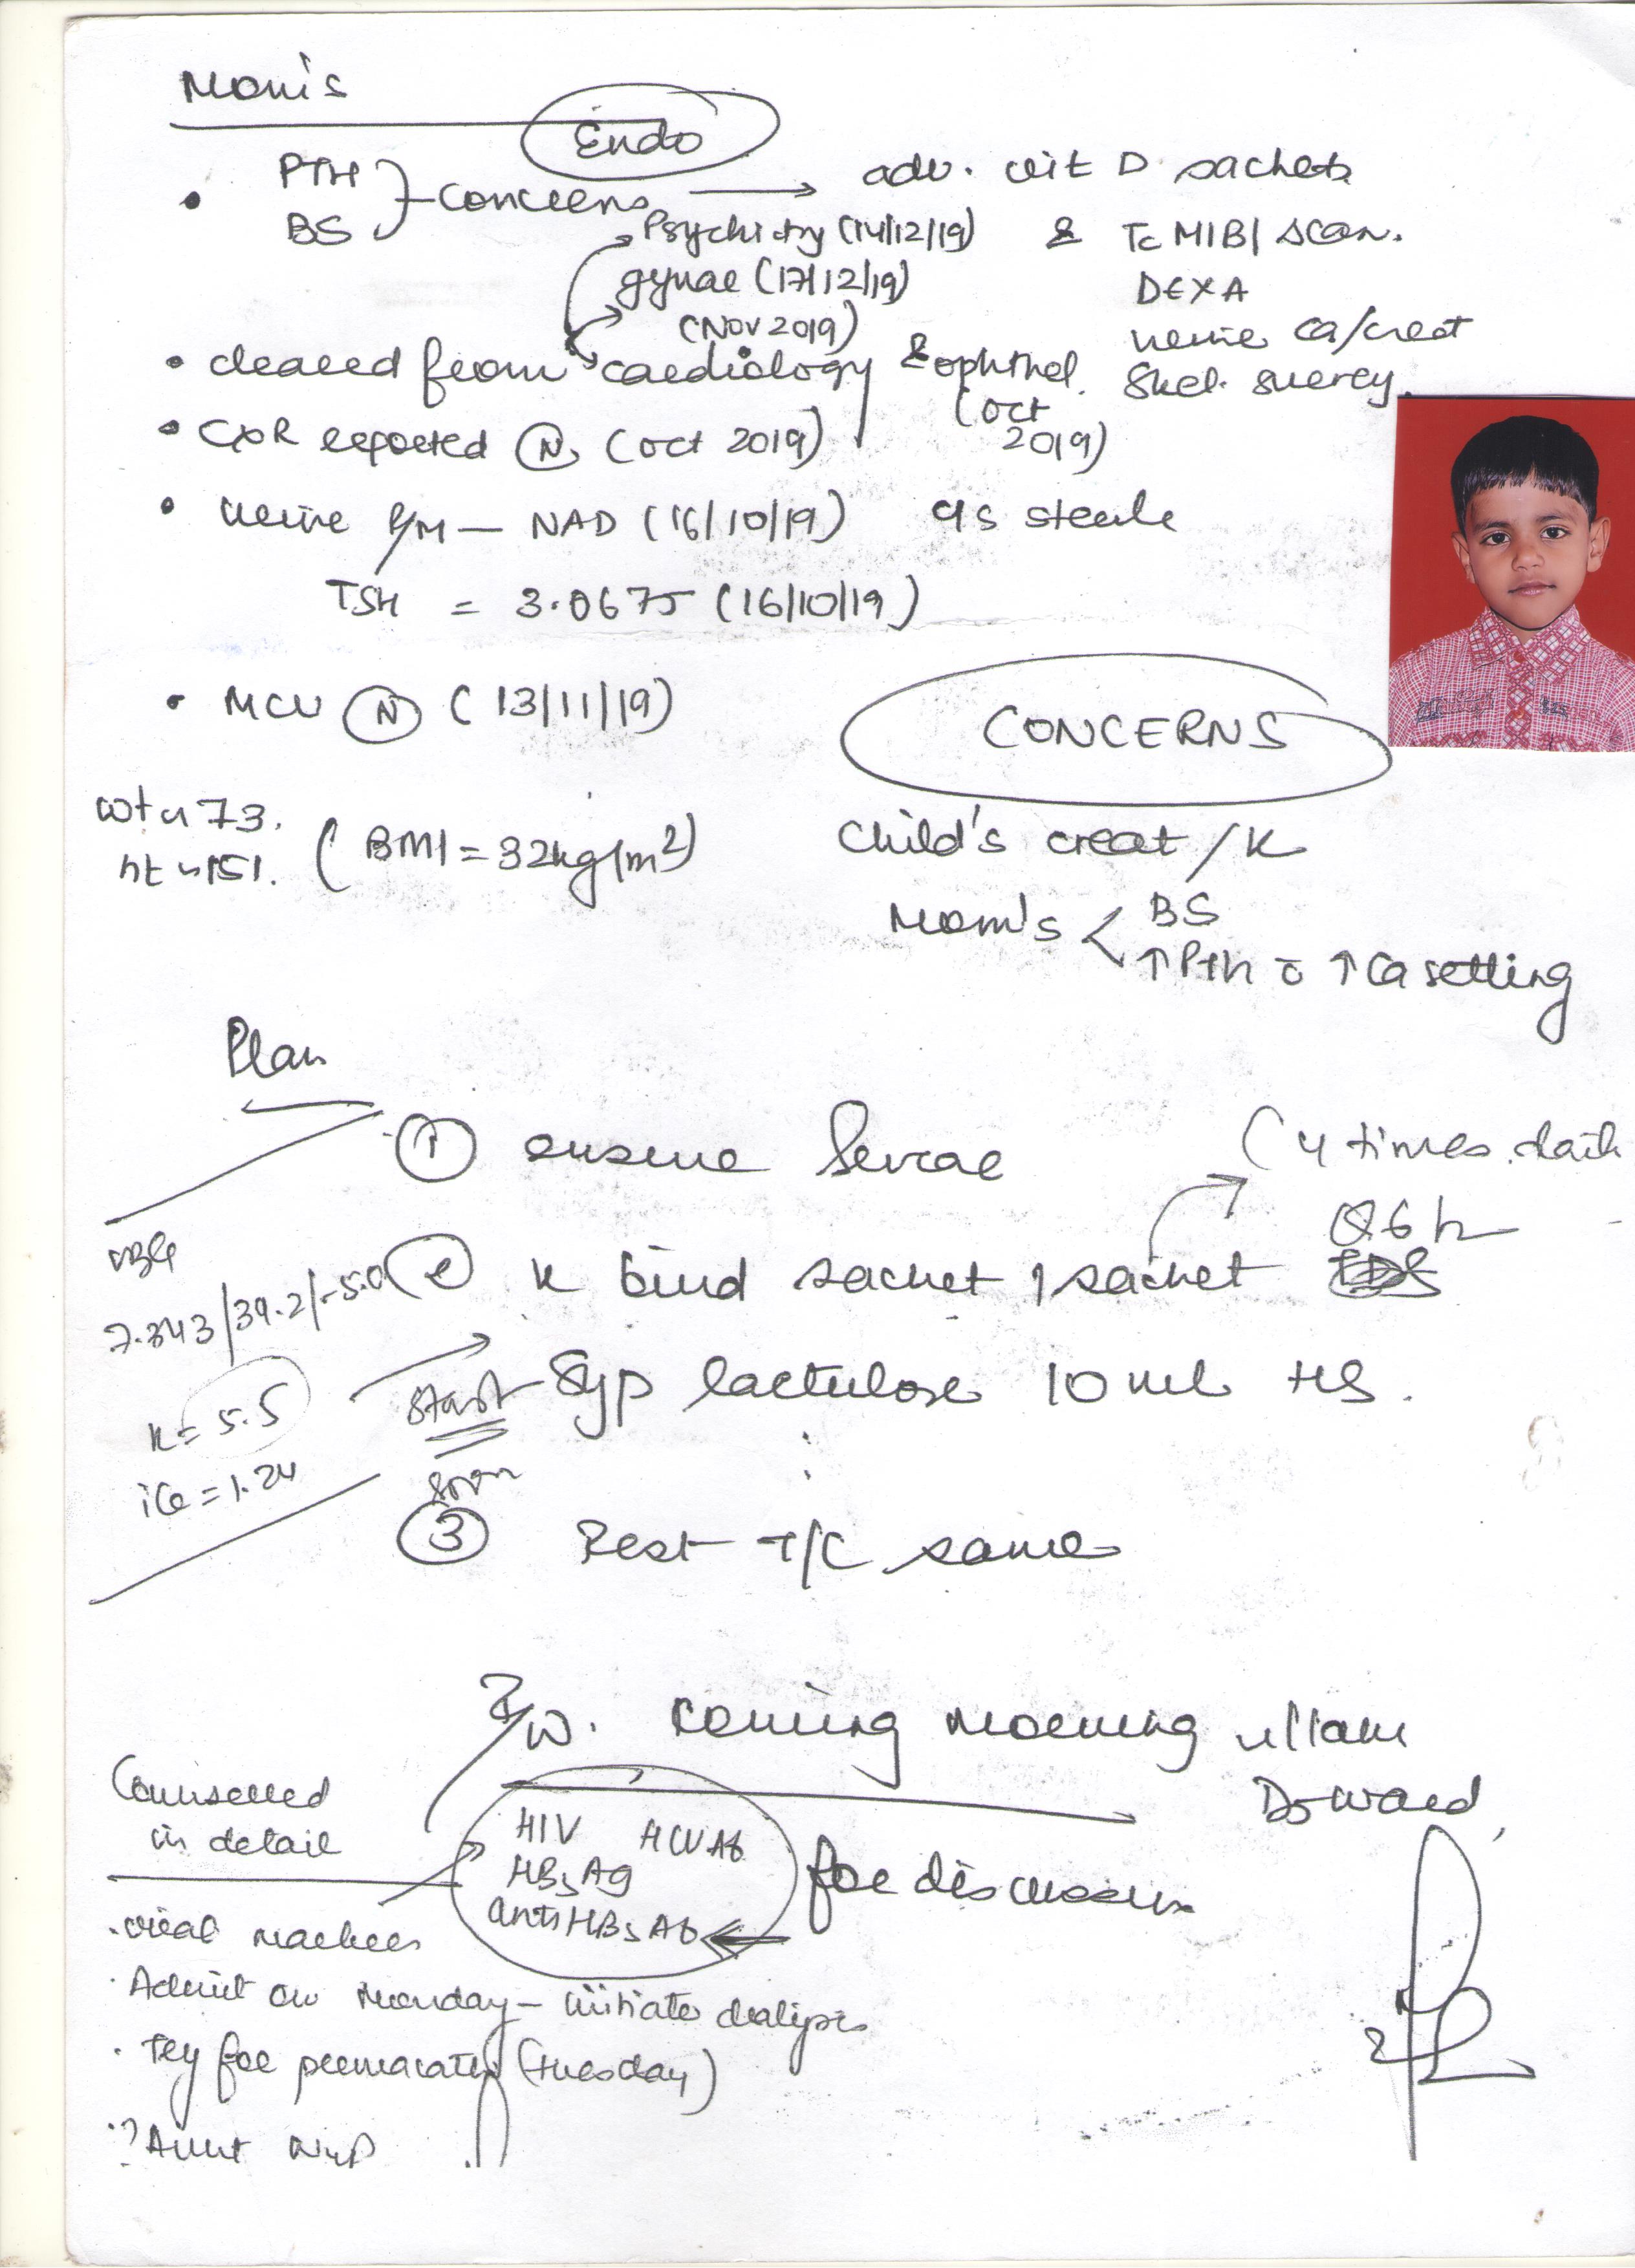 Mom's
Endo
• PTH
BS } concerns → adv. vit D sachets
Psychiatry (14/12/19) & Tc MIBI scan.
gynae (17/12/19) DEXA
(Nov 2019) urine Ca/creat
• cleared from cardiology & ophthal. Skel. survey.
(Oct 2019)
• CXR reported (N) (Oct 2019)
• urine R/M — NAD (16/10/19) c/s sterile
TSH = 3.0675 (16/10/19)
• MCU (N) (13/11/19)
CONCERNS
wt ~ 73.
ht ~ 151. (BMI = 32kg/m²)
Child's creat / K
Mom's < BS
↑Pth c ↑Ca setting
Plan
① ensure
(4 times daily
Q6h
② K bind sachet 1 sachet
VBG
7.343/39.2/-5.0
K = 5.5
iCa = 1.24
→ Start Syp lactulose 10 ml HS.
soon
③ Rest T/C same
R/W. coming morning
D5 ward,
for discussion
Counselled
in detail
HIV HCV Ab
HBsAg
anti HBs Ab
. viral markers
. Admit on Monday — initiate dialysis
. Try for permacath (Tuesday)
? Aunt